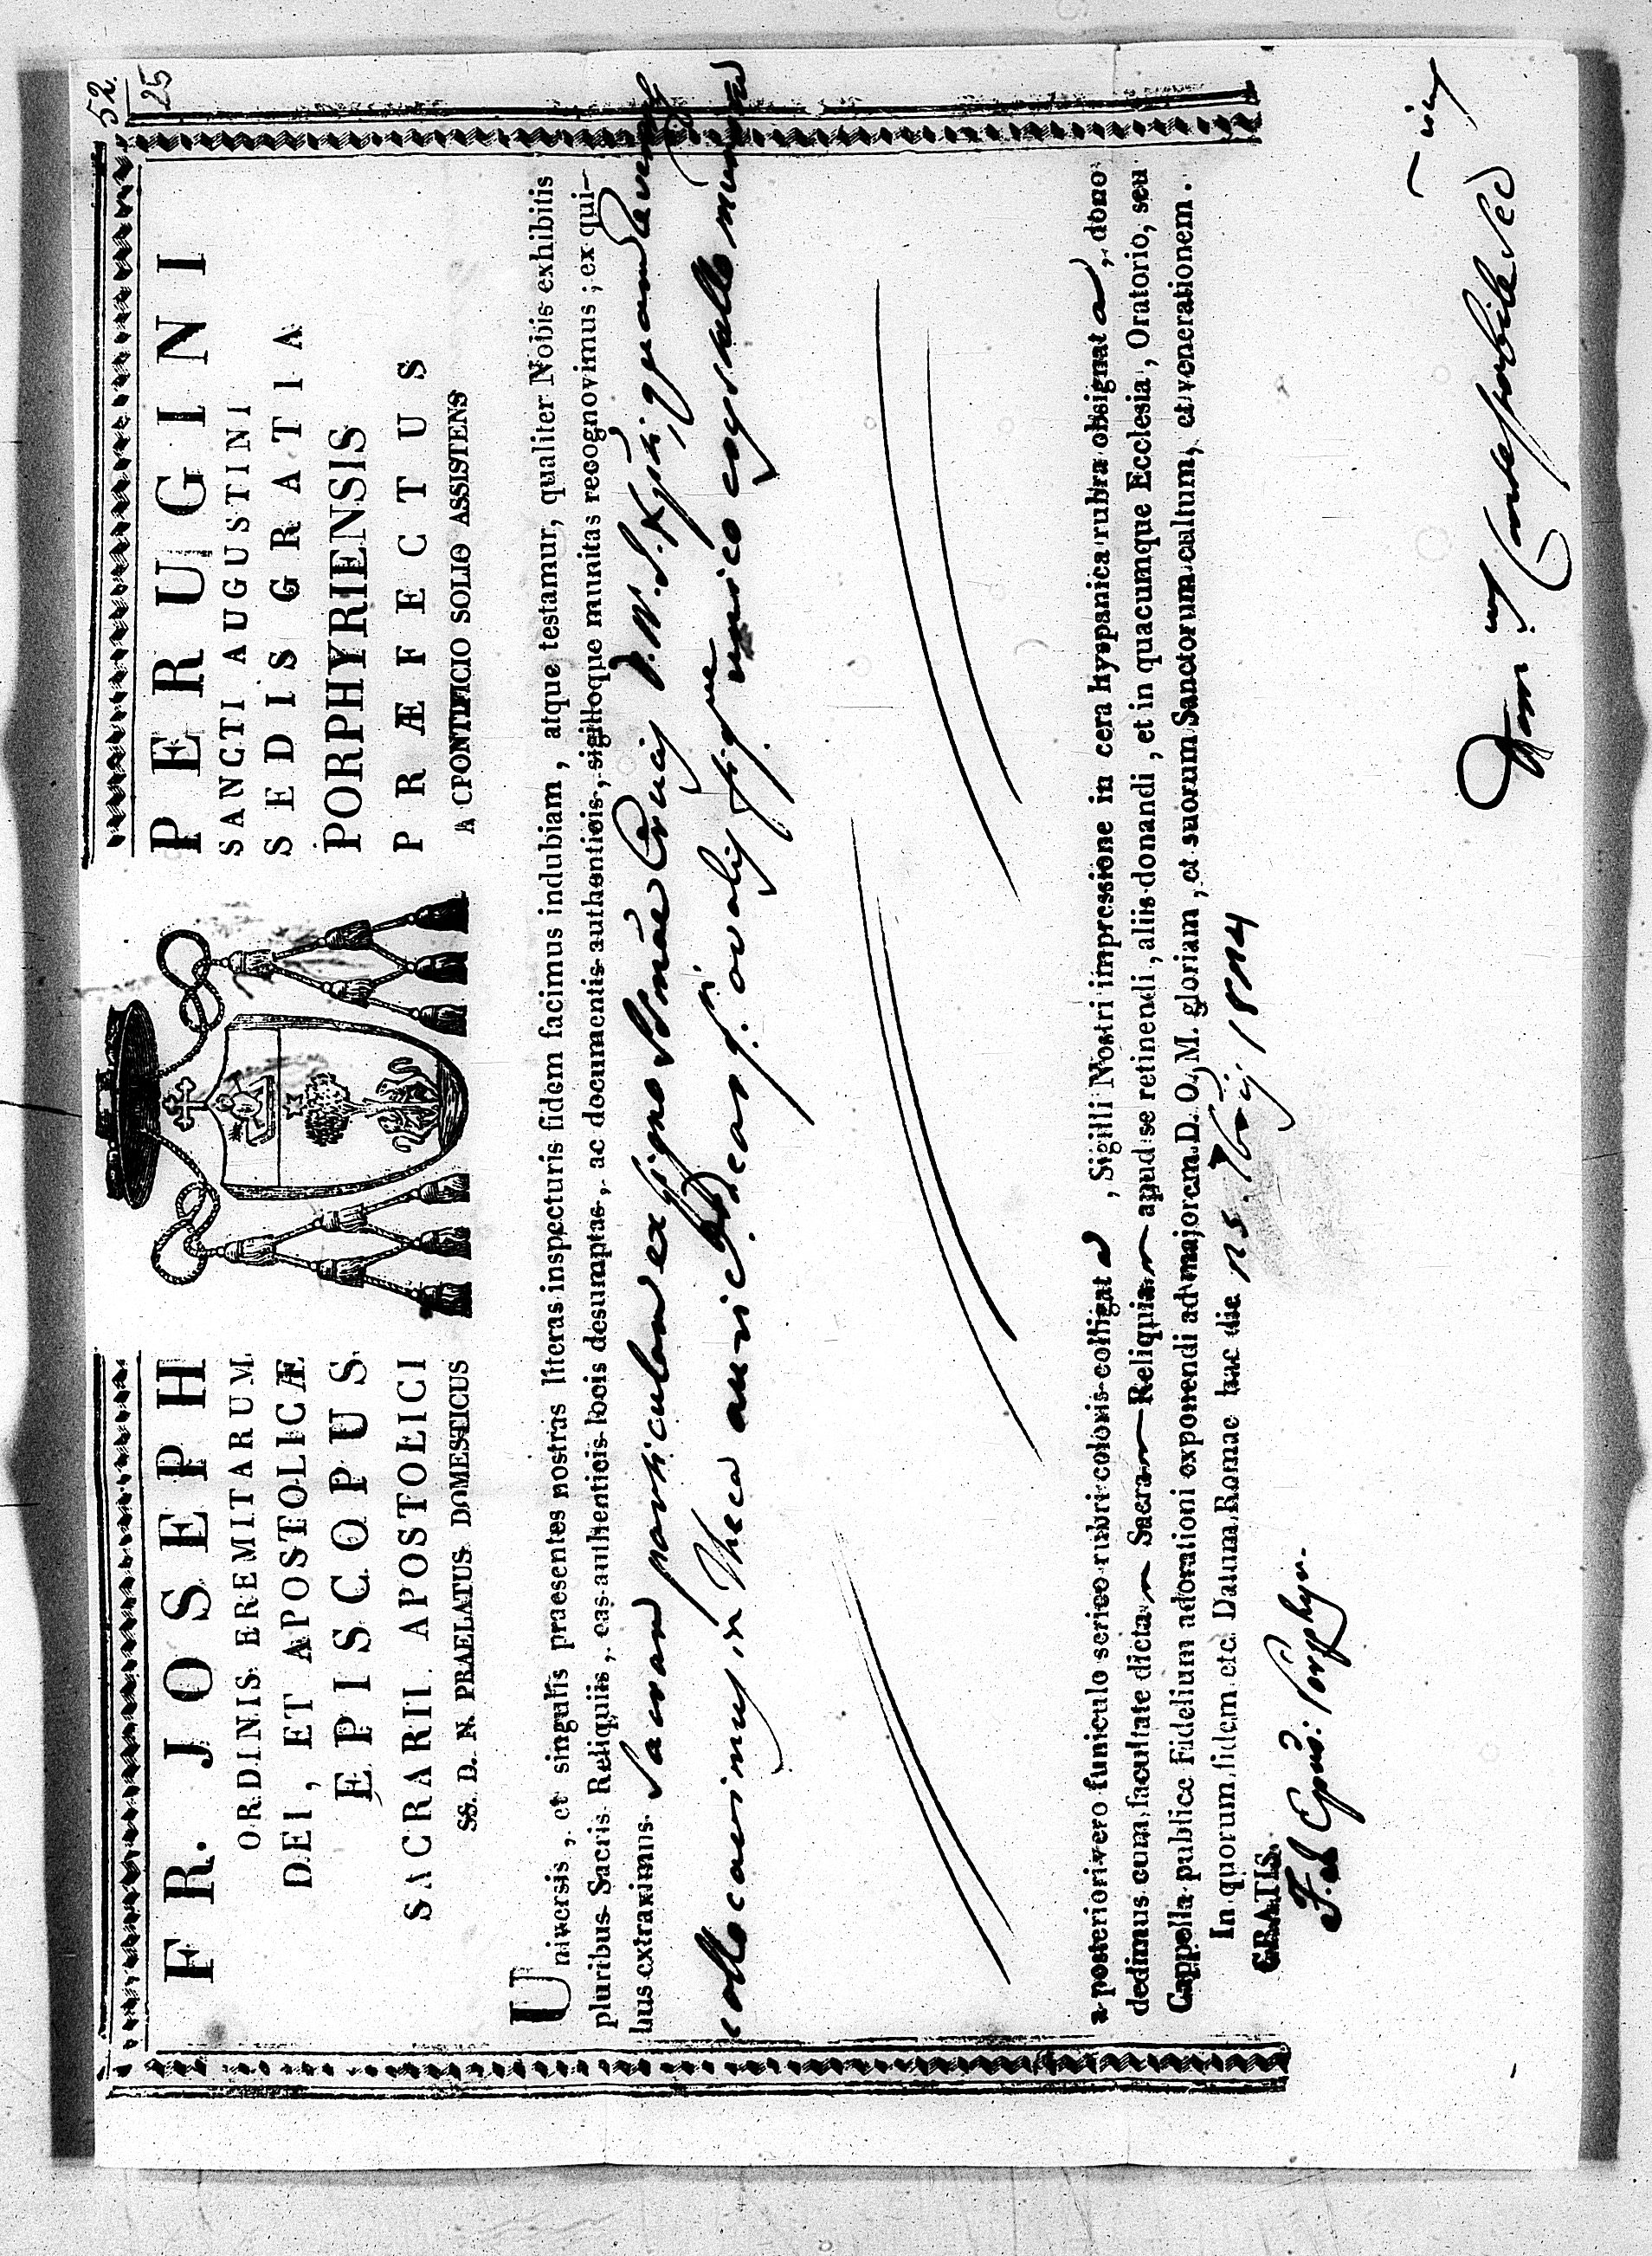 52.
25
FR. JOSEPH PERUGINI
ORDINIS EREMITARUM SANCTI AUGUSTINI
DEI, ET APOSTOLICÆ SEDIS GRATIA
EPISCOPUS PORPHYRIENSIS
SACRARII APOSTOLICI PRÆFECTUS
SS. D. N. PRAELATUS DOMESTICUS AC PONTIFICIO SOLIO ASSISTENS
Universis, et singulis praesentes nostras literas inspecturis fidem facimus indubiam, atque testamur, qualiter Nobis exhibitis
pluribus Sacris Reliquiis, eas authenticis locis desumptas, ac documentis authenticis, sigilloque munitas recognovimus; ex qui-
bus extraximus Sacram particulam ex ligno SSmae Crucis D. N. J. Xpti, quam reverenter
collocavimus in Theca auric
ovalis unico crystallo munita
a posteriori vero funiculo serico rubri coloris colligata, Sigilli Nostri impressione in cera hyspanica rubra obsignata, dono
dedimus cum facultate dictam Sacram Reliquiam apud se retinendi, aliis donandi, et in quacumque Ecclesia, Oratorio, seu
Cappella publice Fidelium adorationi exponendi ad majorem D. O. M. gloriam, et suorum Sanctorum cultum, et venerationem.
In quorum fidem etc. Datum Romae hac die
GRATIS.
F. J. Epus. Porphyr.